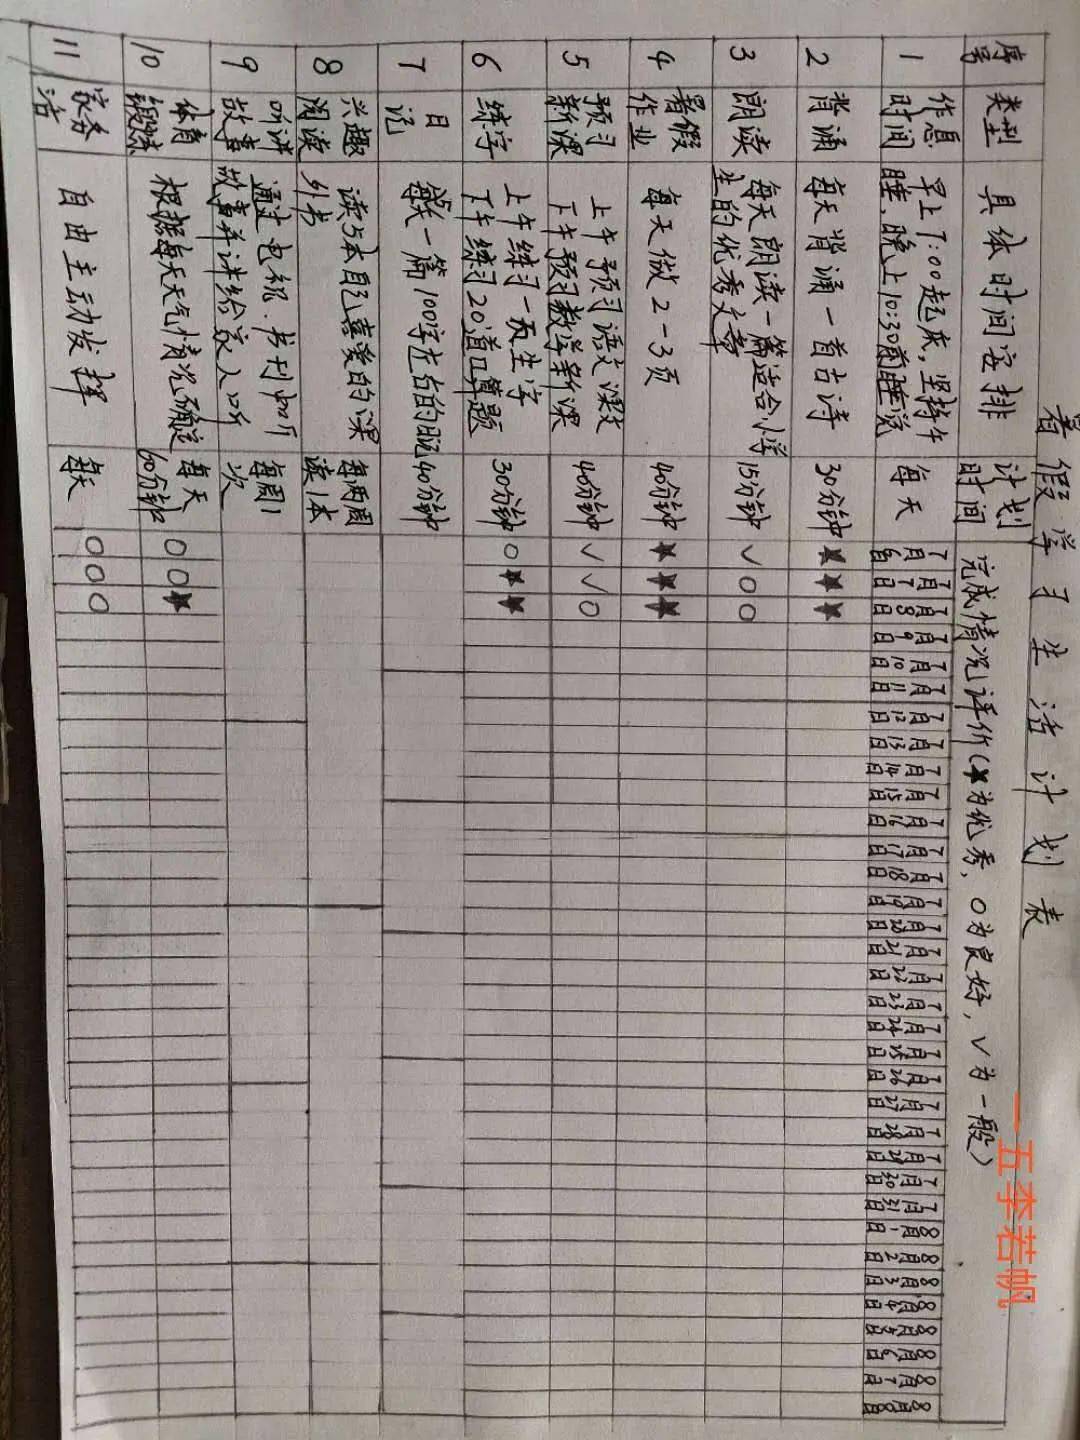 暑假学习生活计划表
一五李若帆
序号 类型 具体时间安排 计划时间 完成情况评价(★为优秀，○为良好，√为一般)
7月6日 7月7日 7月8日 7月9日 7月10日 7月11日 7月12日 7月13日 7月14日 7月15日 7月16日 7月17日 7月18日 7月19日 7月20日 7月21日 7月22日 7月23日 7月24日 7月25日 7月26日 7月27日 7月28日 7月29日 7月30日 7月31日 8月1日 8月2日 8月3日 8月4日 8月5日 8月6日 8月7日 8月8日
1 作息时间 早上7:00起床，坚持午 每天
睡，晚上10:30前睡觉
2 背诵 每天背诵一首古诗 30分钟 ★ ★ ★
3 朗读 每天朗读一篇适合小学 15分钟 √ ○ ○
生的优秀文章
4 暑假作业 每天做2-3页 40分钟 ★ ★ ★
5 预习新课 上午预习语文课文 40分钟 √ √ ○
下午预习数学新课
6 练字 上午练习一页生字 30分钟 ○ ★ ★
下午练习20道口算题
7 日记 每天一篇100字左右的日记 40分钟
8 兴趣阅读 读5本自己喜爱的课 每两周读1本
外书
9 听讲故事 通过电视、书刊中听 每周1次
故事并讲给家人听
10 体育锻炼 根据每天天气情况确定 每天60分钟 ○ ○ ★
11 家务活 自由主动发挥 每天 ○ ○ ○